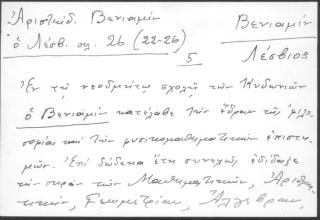 Ἀριστείδ. Βενιαμίν
ὁ Λέσβ. σελ. 26 (22-26)
5
Βενιαμίν
Λέσβιος
Ἐν τῇ νεοδμήτῳ σχολῇ τῶν Κυδωνιῶν
ὁ Βενιαμίν κατέλαβε τὴν ἕδραν τῆς φιλο-
σοφίας καὶ τῶν φυσικομαθηματικῶν ἐπιστη-
μῶν. Ἐπὶ δώδεκα ἔτη συνεχῶς ἐδίδαξε
τὴν σειρὰν τῶν Μαθηματικῶν, Ἀριθμη-
τικήν, Γεωμετρίαν, Ἄλγεβραν,